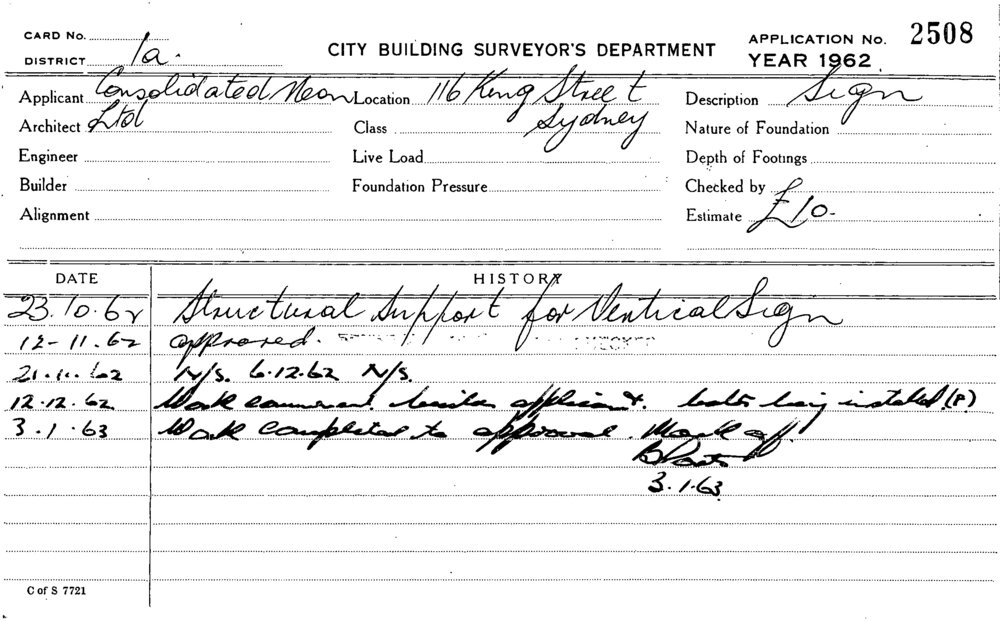 CARD No.
DISTRICT 1a.
CITY BUILDING SURVEYOR'S DEPARTMENT
APPLICATION No. 2508
YEAR 1962
Applicant Consolidated Neon Location 116 King Street Description Sign
Architect Ltd Class Sydney Nature of Foundation
Engineer Live Load Depth of Footings
Builder Foundation Pressure Checked by
Alignment Estimate £10-
DATE HISTORY
23.10.62 Structural Support for Vertical Sign
12-11.62 approved.
21.11.62 N/S. 6.12.62 N/S.
12.12.62 Work commenced. builder applicant. bolts being installed (P)
3.1.63 Work completed to approval. Mark off.
3.1.63
C of S 7721